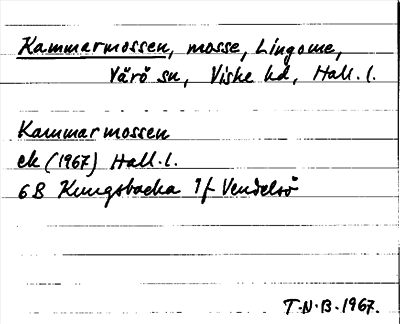 Kammarmossen, mosse, Lingome,
Värö sn, Viske hd, Hall. l.
Kammarmossen
ek (1967) Hall. l.
6B Kungsbacka 1f Vendelsö
T.N.B. 1967.